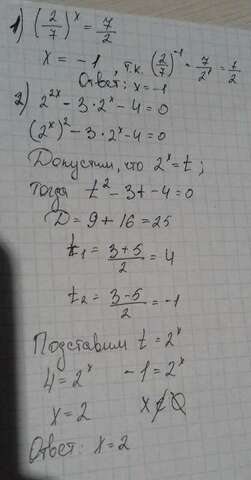 1) (2/7)^x = 7/2
x = -1, т.к. (2/7)^-1 = 7/2 = 7/2
Ответ: x = -1
2) 2^2x - 3·2^x - 4 = 0
(2^x)^2 - 3·2^x - 4 = 0
Допустим, что 2^x = t;
тогда t^2 - 3t - 4 = 0
D = 9 + 16 = 25
t1 = 3+5/2 = 4
t2 = 3-5/2 = -1
Подставим t = 2^x
4 = 2^x -1 = 2^x
x = 2 x ∉ Q
Ответ: x = 2